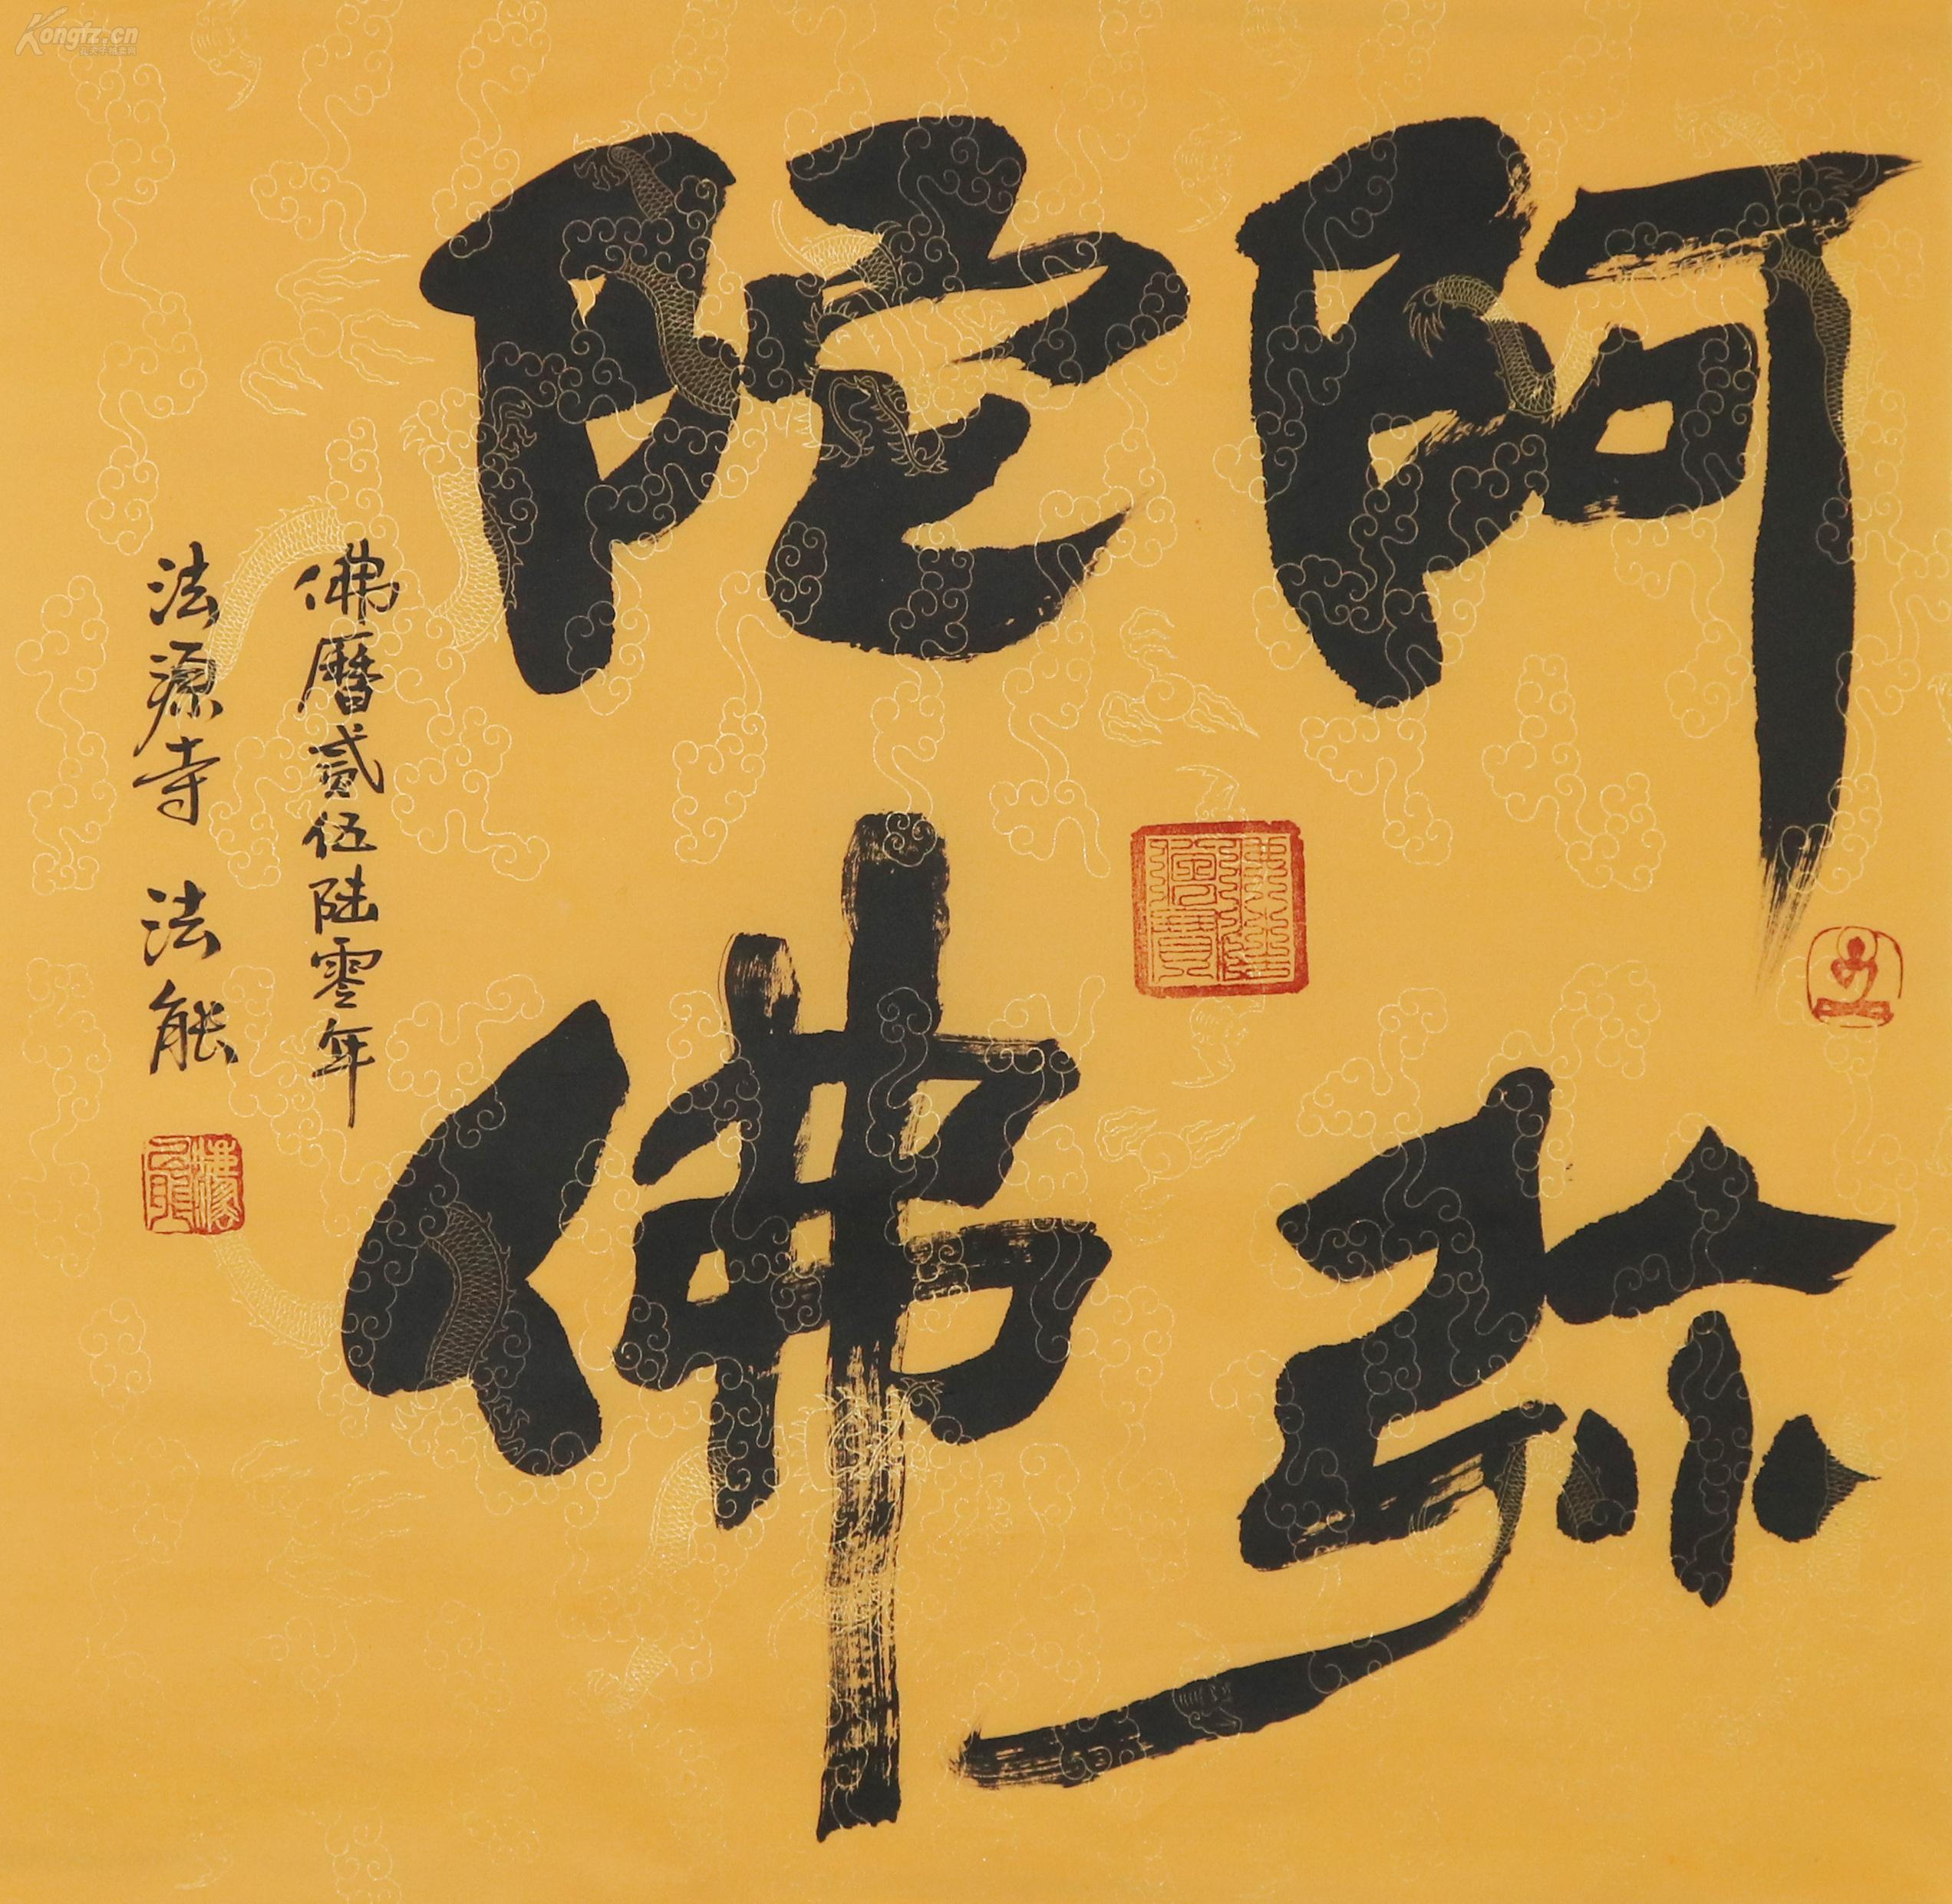 阿弥
陀佛
佛曆贰伍陆零年
法源寺 法能
Kongfz.cn